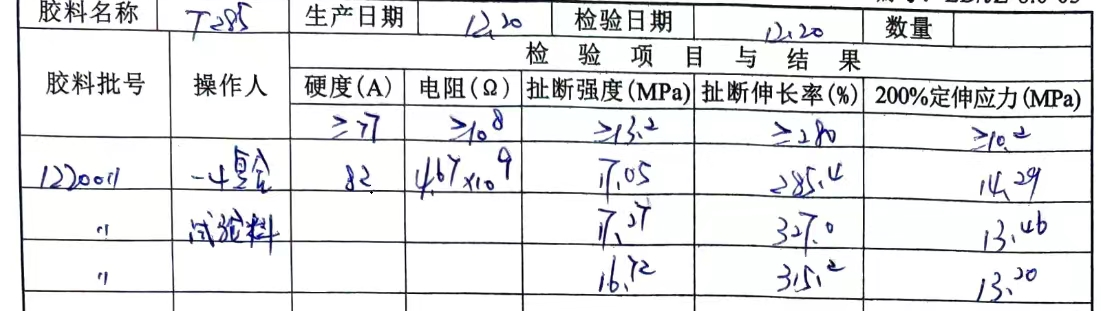 胶料名称 T285 生产日期 12.20 检验日期 12.20 数量
检验项目与结果
胶料批号 操作人 硬度(A) 电阻(Ω) 扯断强度(MPa) 扯断伸长率(%) 200%定伸应力(MPa)
≥77 ≥10⁸ ≥13.2 ≥280 ≥10.2
1220011 一4复合 82 4.67×10⁹ 17.05 285.4 14.29
〃 试验料 17.27 327.0 13.46
〃 16.72 315.2 13.20